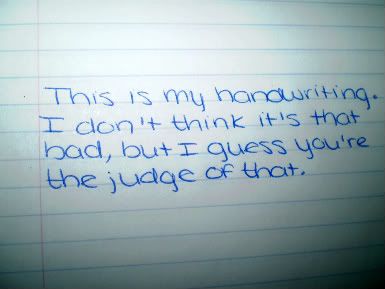 This is my handwriting.
I don't think it's that
bad, but I guess you're
the judge of that.